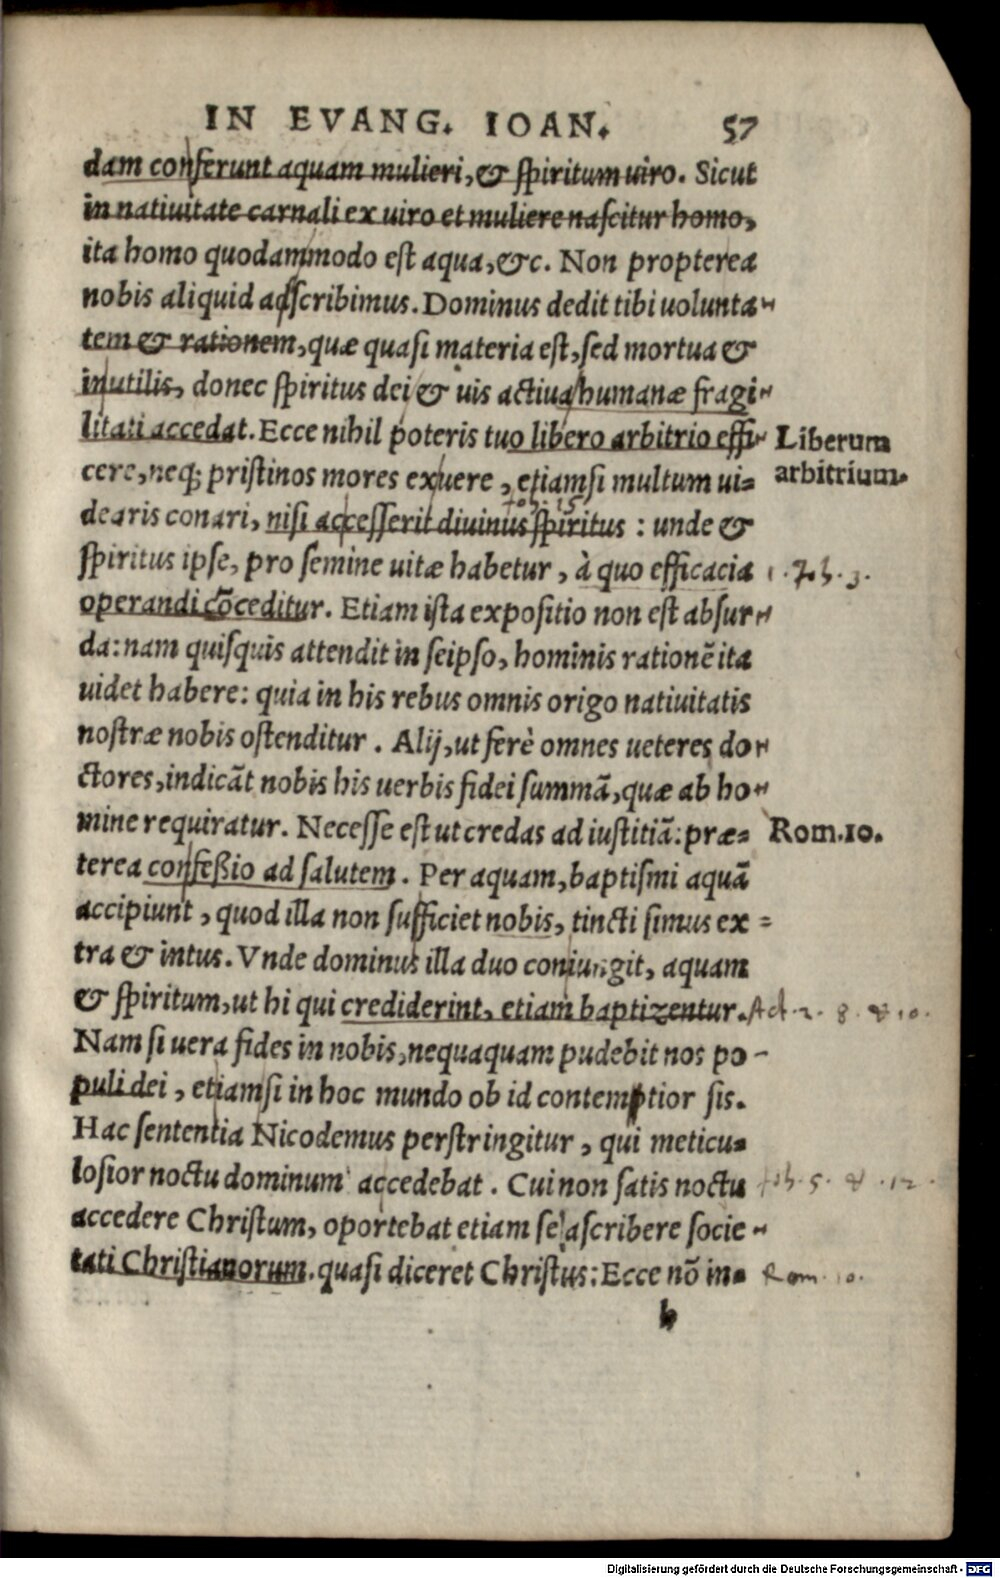 IN EVANG. IOAN. 57
dam conferunt aquam mulieri, & ſpiritum uiro. Sicut
in natiuitate carnali ex uiro et muliere naſcitur homo,
ita homo quodammodo eſt aqua, &c. Non propterea
nobis aliquid adſcribimus. Dominus dedit tibi uolunta-
tem & rationem, quæ quaſi materia eſt, ſed mortua &
inutilis, donec ſpiritus dei & uis actiua humanæ fragi-
litati accedat. Ecce nihil poteris tuo libero arbitrio effi-
Liberum
arbitrium.
cere, neq; priſtinos mores exuere, etiamſi multum ui=
Joh. 15
dearis conari, niſi acceſſerit diuinus ſpiritus : unde &
ſpiritus ipſe, pro ſemine uitæ habetur, à quo efficacia
1. Joh. 3.
operandi cõceditur. Etiam iſta expoſitio non eſt abſur-
da: nam quiſquis attendit in ſeipſo, hominis rationẽ ita
uidet habere: quia in his rebus omnis origo natiuitatis
noſtræ nobis oſtenditur. Alij, ut ferè omnes ueteres do-
ctores, indicãt nobis his uerbis fidei ſummã, quæ ab ho-
mine requiratur. Neceſſe eſt ut credas ad iuſtitiã: præ=
Rom. 10.
terea confeßio ad ſalutem. Per aquam, baptiſmi aquã
accipiunt, quod illa non ſufficiet nobis, tincti ſimus ex=
tra & intus. Vnde dominus illa duo coniungit, aquam
& ſpiritum, ut hi qui crediderint, etiam baptizentur.
Act. 2. 8. & 10.
Nam ſi uera fides in nobis, nequaquam pudebit nos po-
puli dei, etiamſi in hoc mundo ob id contemptior ſis.
Hac ſententia Nicodemus perſtringitur, qui meticu=
loſior noctu dominum accedebat. Cui non ſatis noctu
Joh. 5. & .12.
accedere Chriſtum, oportebat etiam ſe aſcribere ſocie-
tati Chriſtianorum. quaſi diceret Chriſtus: Ecce nõ in=
Rom. 10.
h
Digitalisierung gefördert durch die Deutsche Forschungsgemeinschaft - DFG